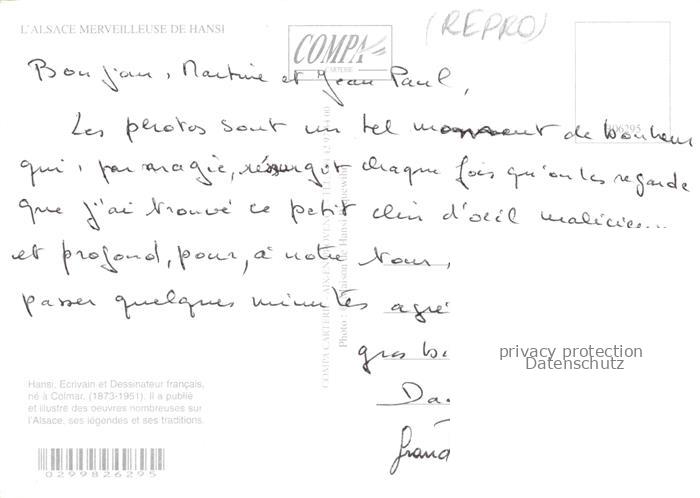 L'ALSACE MERVEILLEUSE DE HANSI
(REPRO)
COMPA
CARTERIE
Bonjour, Martine et Jean Paul,
Les photos sont un tel moment de bonheur
qui, par magie, resurgit chaque fois qu'on les regarde
que j'ai trouvé ce petit clin d'oeil malicieux...
et profond, pour, à notre tour,
passer quelques minutes agré
gros b
Da
Grand
privacy protection
Datenschutz
COMPA CARTERIE AIX-EN-PROVENCE
Photo : Maison de Hansi
Hansi, Ecrivain et Dessinateur français,
né à Colmar, (1873-1951). Il a publié
et illustré des oeuvres nombreuses sur
l'Alsace, ses légendes et ses traditions.
0299826295